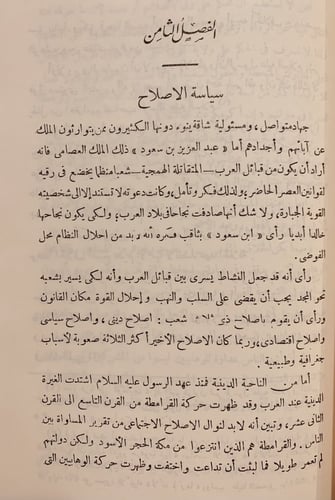 الفصل الثامن
سياسة الاصلاح
جهاد متواصل، ومسئولية شاقة ينوء دونها الكثيرون ممن يتوارثون الملك
عن آبائهم وأجدادهم أما « عبد العزيز بن سعود » ذلك الملك العصامى فانه
أراد أن يكون من قبائل العرب – المتقاتلة الهمجية – شعبا منظما يخضع فى رقيه
لقوانين العصر الحاضر، ولذلك فكر وتأمل، وكانت دعوته لا تستند إلا الى شخصيته
القوية الجبارة، ولا شك أنها صادفت نجاحا فى بلاد العرب، ولكى يكون نجاحها
خالدا أبديا رأى « ابن سعود » بثاقب فكره أنه لابد من احلال النظام محل
الفوضى.
رأى أنه قد جعل النشاط يسرى بين قبائل العرب وأنه لكى يسير بشعبه
نحو المجد يجب أن يقضى على السلب والنهب و إحلال القوة مكان القانون
ورأى أن يقوم باصلاح ذى شعب : اصلاح دينى، واصلاح سياسى
واصلاح اقتصادى، وربما كان الاصلاح الأخير أكثر الثلاثة صعوبة لأسباب
جغرافية وطبيعية .
أما من الناحية الدينية فمنذ عهد الرسول عليه السلام اشتدت الغيرة
الدينية عند العرب وقد ظهرت حركة القرامطة من القرن التاسع الى القرن
الثانى عشر، وتبين أنه لابد لنوال الاصلاح الاجتماعى من تقرير المساواة بين
الناس. والقرامطة هم الذين انتزعوا من مكة الحجر الأسود ولكن دولتهم
لم تعمر طويلا فما لبثت أن تداعت واختفت وظهرت حركة الوهابيين التى